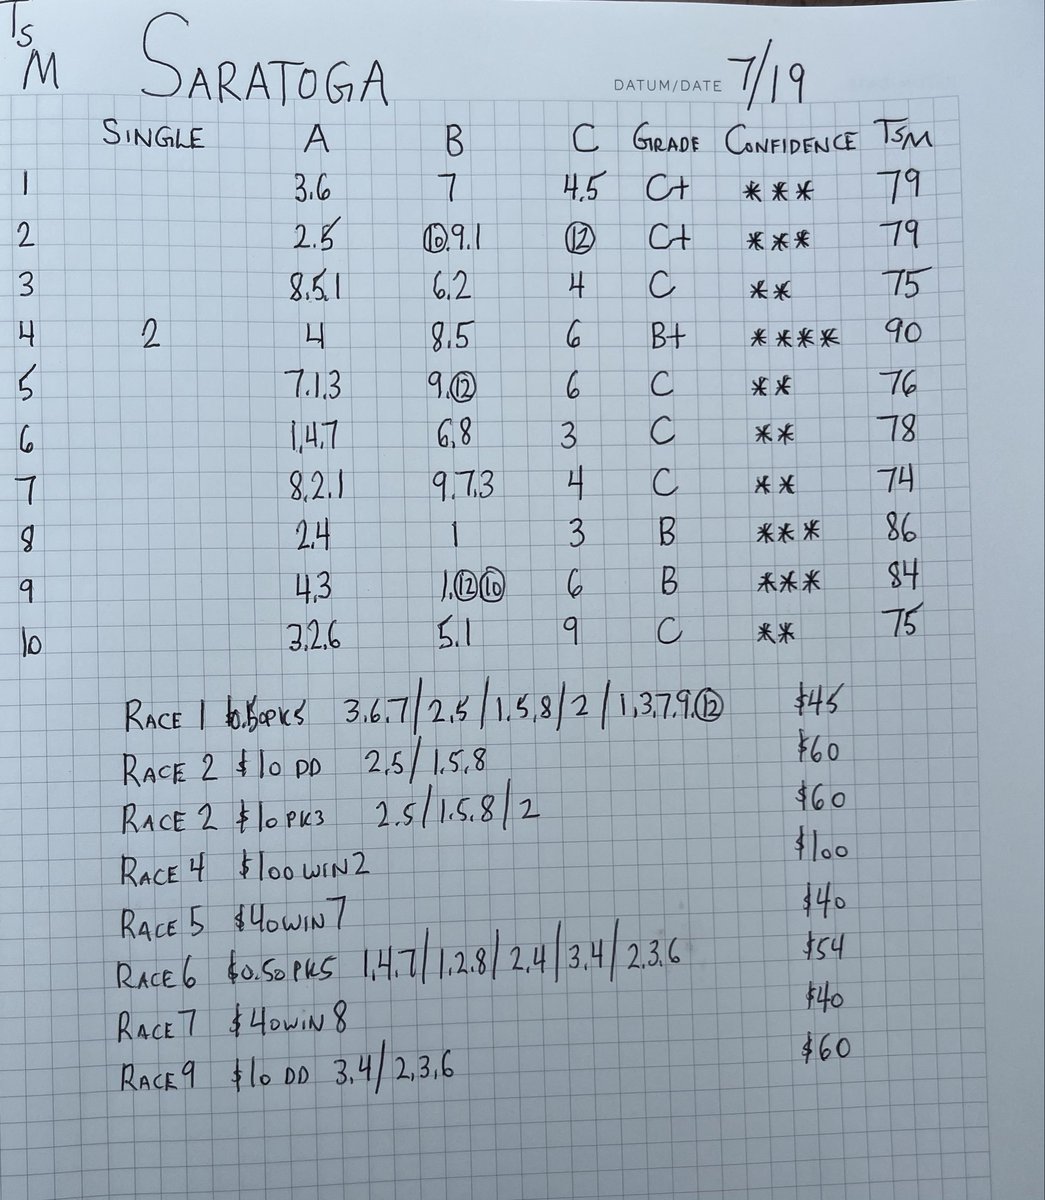 TS
M SARATOGA DATUM/DATE 7/19
SINGLE A B C GRADE CONFIDENCE TSM
1 3.6 7 4.5 C+ *** 79
2 2.5 ⑩.9.1 ⑫ C+ *** 79
3 8.5.1 6.2 4 C ** 75
4 2 4 8.5 6 B+ **** 90
5 7.1.3 9.⑫ 6 C ** 76
6 1,4,7 6,8 3 C ** 78
7 8,2.1 9.7.3 4 C ** 74
8 2.4 1 3 B *** 86
9 4,3 1.⑫⑩ 6 B *** 84
10 3.2.6 5.1 9 C ** 75
RACE 1 $0.50PK5 3.6.7/2.5/1.5.8/2/1,3,7.9.⑫ $45
RACE 2 $10 DD 2.5/1.5.8 $60
RACE 2 $10PK3 2.5/1.5.8/2 $60
RACE 4 $100 WIN 2 $100
RACE 5 $40WIN 7 $40
RACE6 $0.50PK5 1,4.7/1.2.8/2,4/3,4/2.3.6 $54
RACE7 $40WIN 8 $40
RACE9 $10 DD 3,4/2,3,6 $60